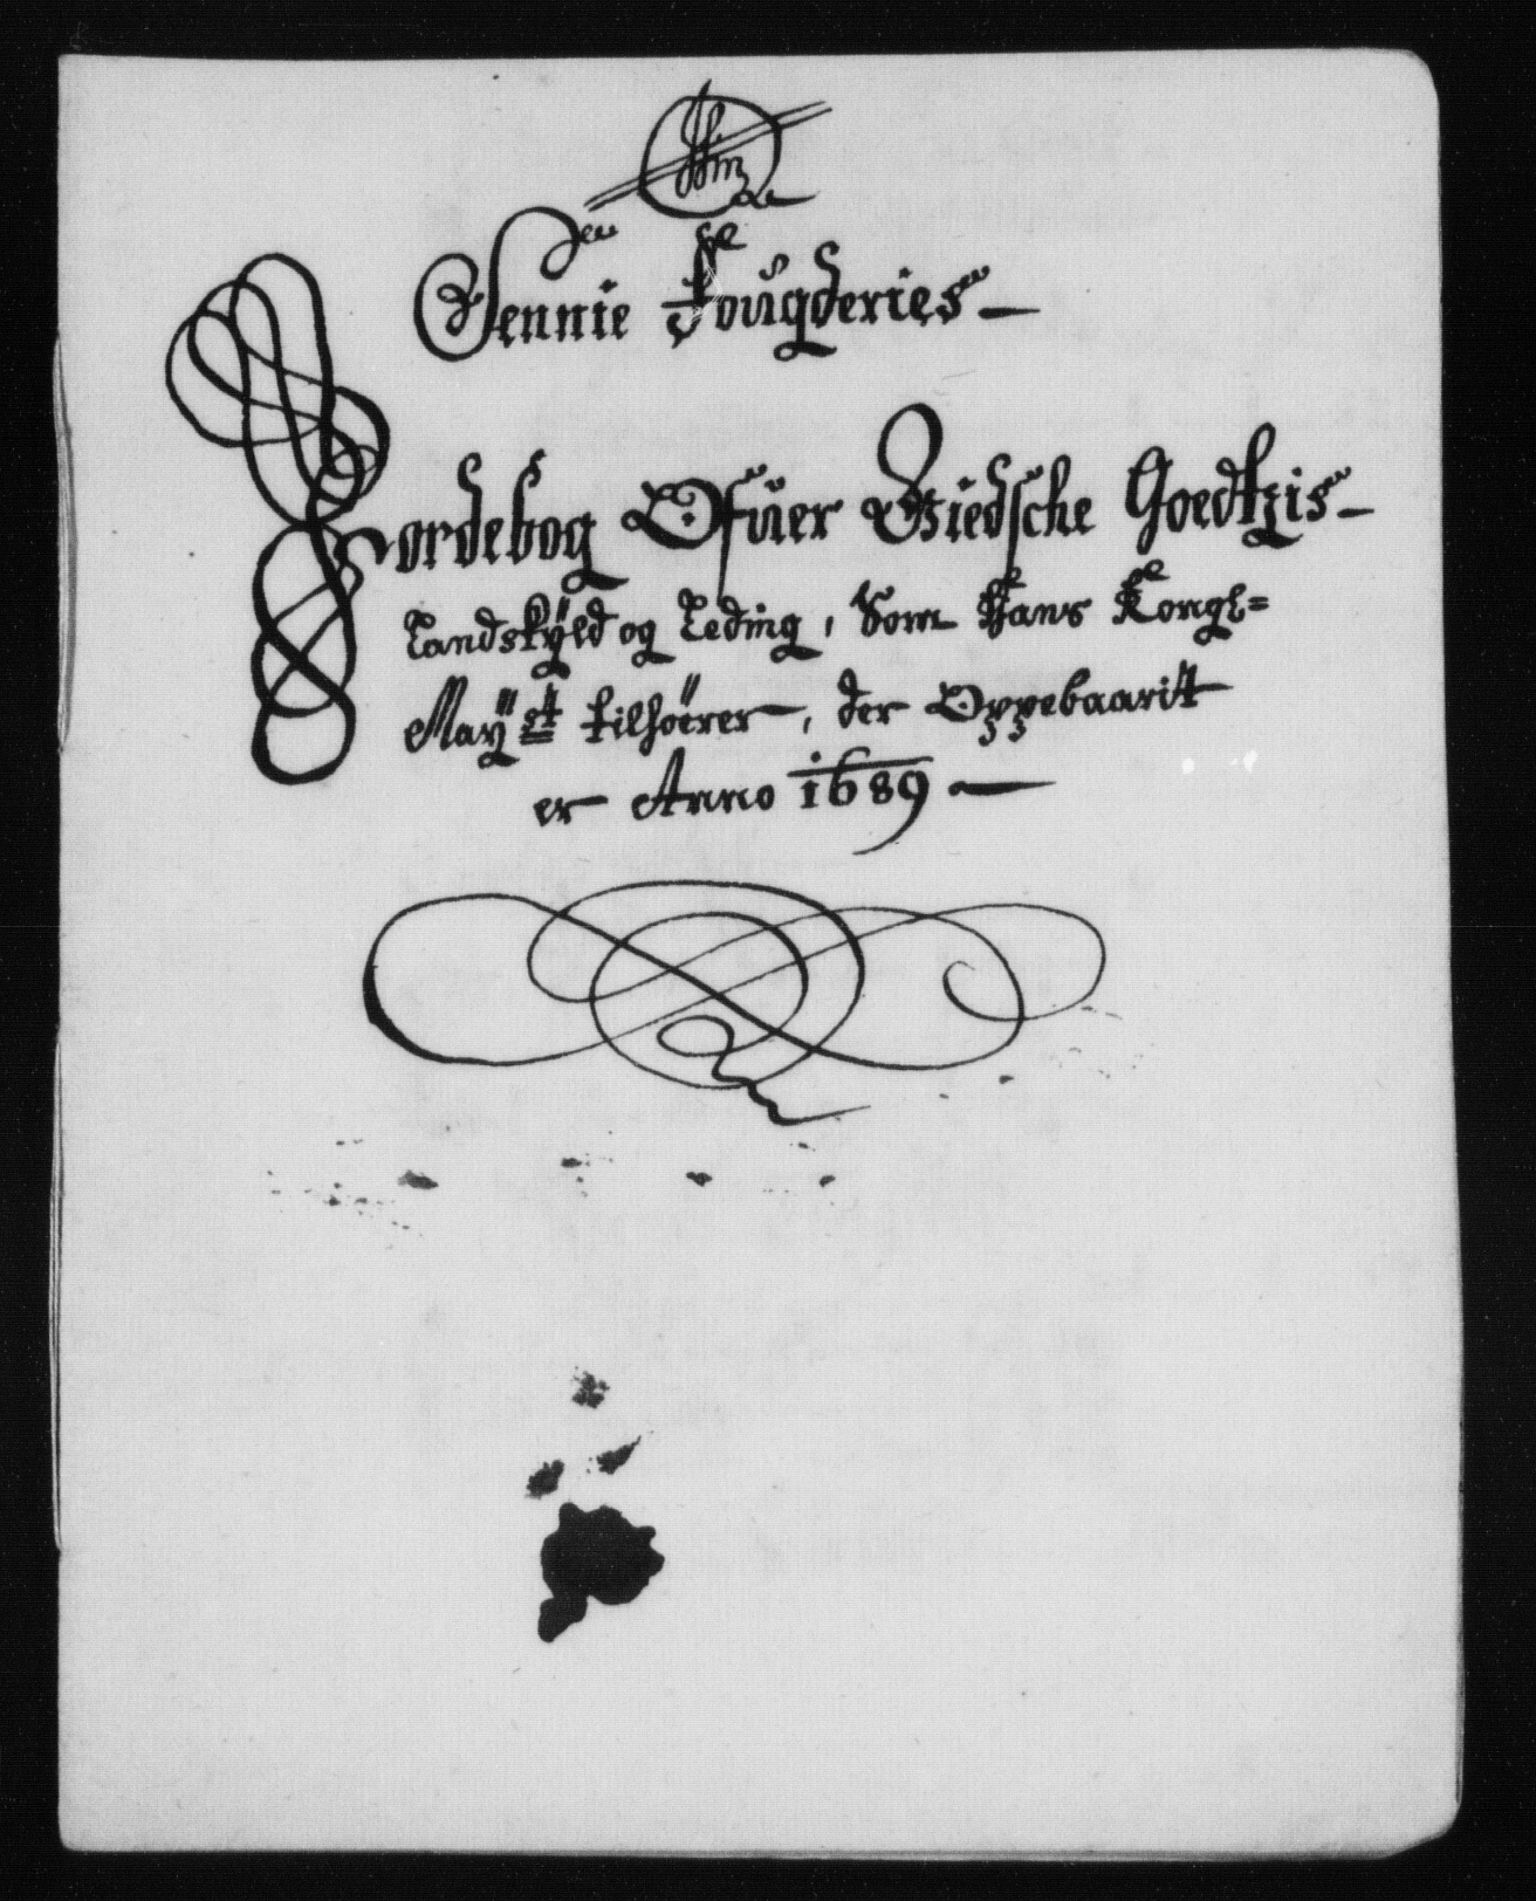 Sennie Fougderies
Jordebog Ofuer Giedsche Goedtzis
Landskÿld og Leding, Som Hans Kongl=
Maÿst tilhörer, der Oppebaarit
er Anno 1689